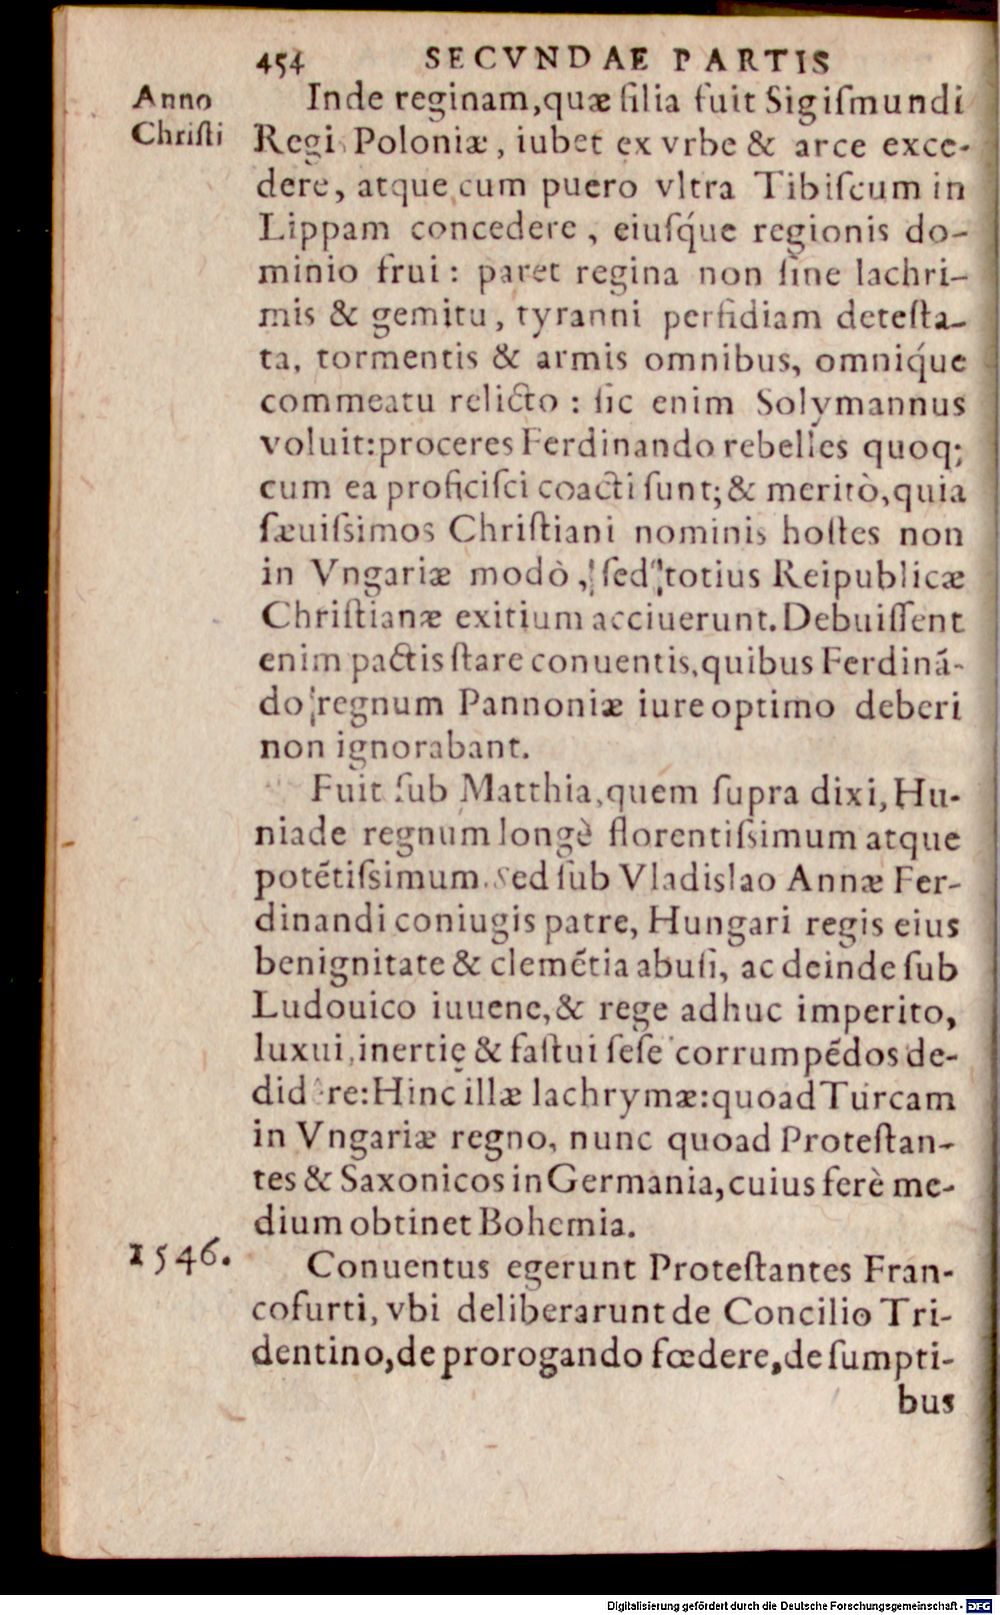 454 SECVNDAE PARTIS
Anno
Christi
Inde reginam, quæ filia fuit Sigiſmundi
Regi Poloniæ, iubet ex vrbe & arce exce-
dere, atque cum puero vltra Tibiſcum in
Lippam concedere, eiuſq́ue regionis do-
minio frui: paret regina non ſine lachri-
mis & gemitu, tyranni perfidiam deteſta-
ta, tormentis & armis omnibus, omniq́ue
commeatu relicto: ſic enim Solymannus
voluit: proceres Ferdinando rebelles quoq;
cum ea proficiſci coacti ſunt; & meritò, quia
ſæuiſsimos Chriſtiani nominis hoſtes non
in Vngariæ modò, ſed totius Reipublicæ
Chriſtianæ exitium acciuerunt. Debuiſſent
enim pactis ſtare conuentis, quibus Ferdinā-
do regnum Pannoniæ iure optimo deberi
non ignorabant.
Fuit ſub Matthia, quem ſupra dixi, Hu-
niade regnum longè florentiſsimum atque
potētiſsimum. Sed ſub Vladislao Annæ Fer-
dinandi coniugis patre, Hungari regis eius
benignitate & clemētia abuſi, ac deinde ſub
Ludouico iuuene, & rege adhuc imperito,
luxui, inertię & faſtui ſeſe corrumpēdos de-
didêre: Hinc illæ lachrymæ: quoad Turcam
in Vngariæ regno, nunc quoad Proteſtan-
tes & Saxonicos in Germania, cuius ferè me-
dium obtinet Bohemia.
1546.
Conuentus egerunt Proteſtantes Fran-
cofurti, vbi deliberarunt de Concilio Tri-
dentino, de prorogando fœdere, de ſumpti-
bus
Digitalisierung gefördert durch die Deutsche Forschungsgemeinschaft - DFG